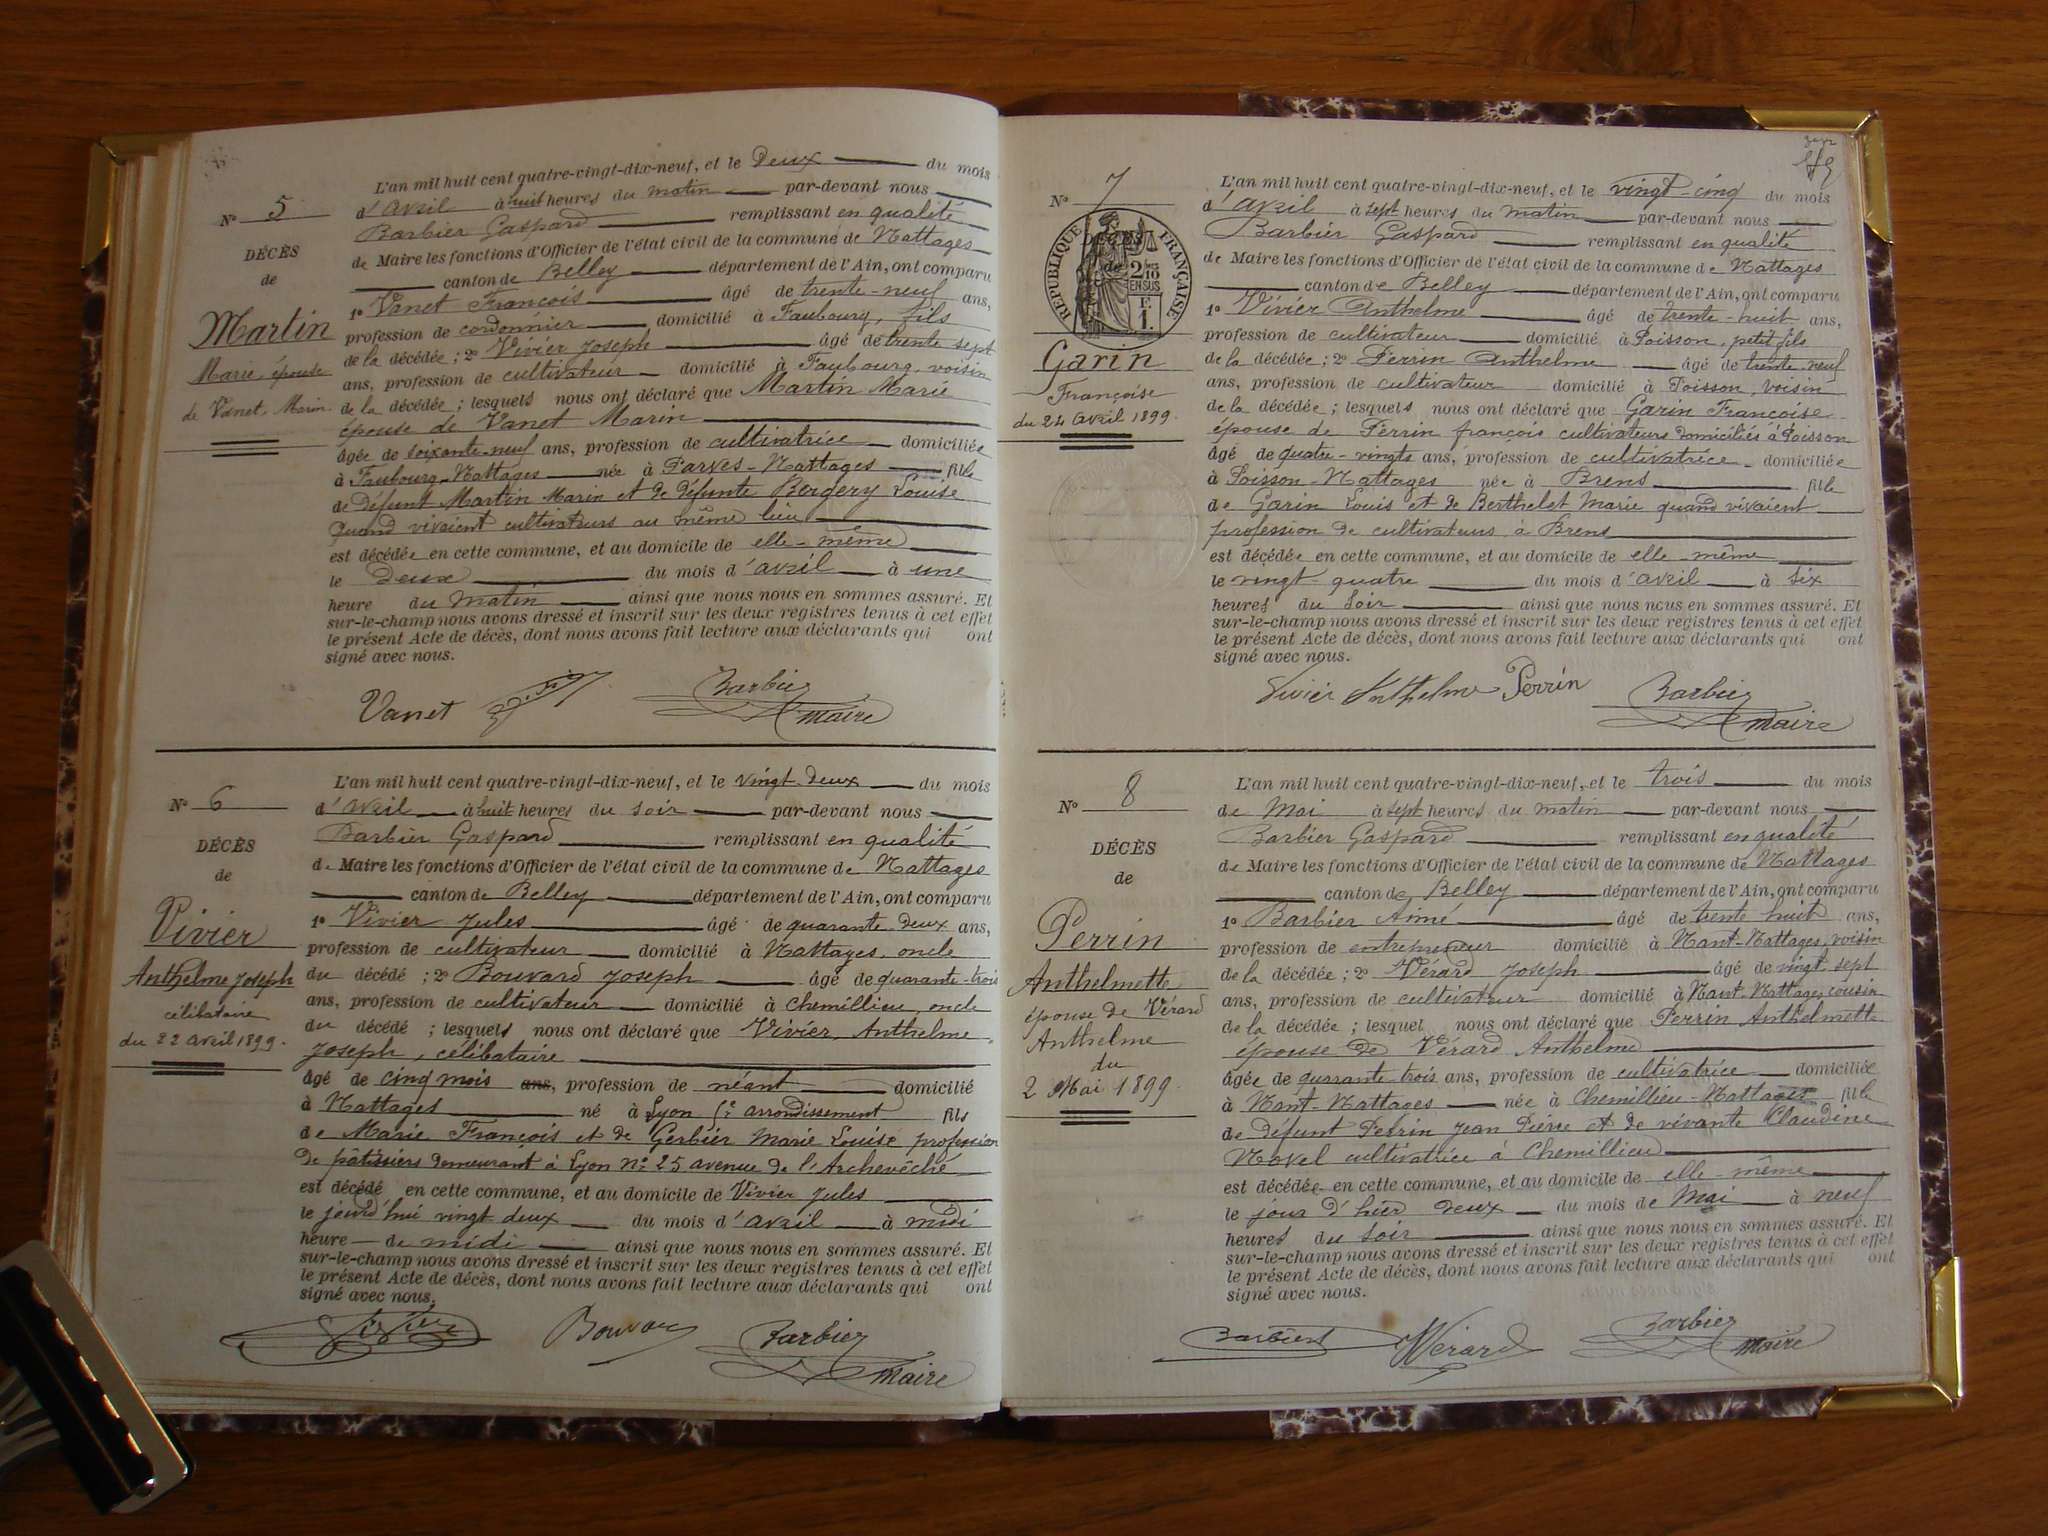 N° 5
DÉCÈS
de
Martin
Marie, épouse
de Vanet, Marin.
L'an mil huit cent quatre-vingt-dix-neuf, et le Deux du mois
d'avril à huit heures du matin par-devant nous
Barbier Gaspard remplissant en qualité
de Maire les fonctions d'Officier de l'état civil de la commune de Nattages
canton de Belley département de l'Ain, ont comparu
1° Vanet François âgé de trente-neuf ans,
profession de cordonnier domicilié à Faubourg, fils
de la décédée ; 2° Vivier Joseph âgé de trente sept
ans, profession de cultivateur domicilié à Faubourg, voisin
de la décédée ; lesquels nous ont déclaré que Martin Marie
épouse de Vanet Marin
âgée de soixante-neuf ans, profession de cultivatrice domiciliée
à Faubourg-Nattages née à Parves-Nattages fille
de Défunt Martin Marin et de défunte Bergery Louise
Quand vivaient cultivateurs au même lieu
est décédée en cette commune, et au domicile de elle-même
le Deux du mois d'avril à une
heure du matin ainsi que nous nous en sommes assuré. Et
sur-le-champ nous avons dressé et inscrit sur les deux registres tenus à cet effet
le présent Acte de décès, dont nous avons fait lecture aux déclarants qui ont
signé avec nous.
Vanet Barbier
maire
N° 6
DÉCÈS
de
Vivier
Anthelme Joseph
célibataire
du 22 avril 1899.
L'an mil huit cent quatre-vingt-dix-neuf, et le vingt-deux du mois
d'avril à huit heures du soir par-devant nous
Barbier Gaspard remplissant en qualité
de Maire les fonctions d'Officier de l'état civil de la commune de Nattages
canton de Belley département de l'Ain, ont comparu
1° Vivier Jules âgé de quarante-deux ans,
profession de cultivateur domicilié à Nattages, oncle
du décédé ; 2° Bouvard Joseph âgé de quarante-trois
ans, profession de cultivateur domicilié à Chemillieu oncle
du décédé ; lesquels nous ont déclaré que Vivier, Anthelme
Joseph, célibataire
âgé de cinq mois ans, profession de néant domicilié
à Nattages né à Lyon arrondissement fils
de Marie François et de Gerbier Marie Louise profession
de pâtissiers demeurant à Lyon n° 25 avenue de l'Archevêché
est décédé en cette commune, et au domicile de Vivier Jules
le jourd'hui vingt deux du mois d'avril à midi
heure de midi ainsi que nous nous en sommes assuré. Et
sur-le-champ nous avons dressé et inscrit sur les deux registres tenus à cet effet
le présent Acte de décès, dont nous avons fait lecture aux déclarants qui ont
signé avec nous.
Vivier Bouvard Barbier
maire
N° 7
RÉPUBLIQUE FRANÇAISE
DÉCÈS
de
2/10
EN SUS
Fr
1.
Garin
Françoise
du 24 avril 1899.
L'an mil huit cent quatre-vingt-dix-neuf, et le vingt-cinq du mois
d'avril à sept heures du matin par-devant nous
Barbier Gaspard remplissant en qualité
de Maire les fonctions d'Officier de l'état civil de la commune de Nattages
canton de Belley département de l'Ain, ont comparu
1° Vivier Anthelme âgé de trente-huit ans,
profession de cultivateur domicilié à Poisson, petit fils
de la décédée ; 2° Perrin Anthelme âgé de trente-neuf
ans, profession de cultivateur domicilié à Poisson, voisin
de la décédée ; lesquels nous ont déclaré que Garin Françoise
épouse de Perrin françois cultivateurs domiciliés à Poisson
âgé de quatre-vingts ans, profession de cultivatrice domiciliée
à Poisson-Nattages née à Brens fille
de Garin Louis et de Berthelet Marie quand vivaient
profession de cultivateurs à Brens
est décédée en cette commune, et au domicile de elle même
le vingt quatre du mois d'avril à six
heures du soir ainsi que nous nous en sommes assuré. Et
sur-le-champ nous avons dressé et inscrit sur les deux registres tenus à cet effet
le présent Acte de décès, dont nous avons fait lecture aux déclarants qui ont
signé avec nous.
Vivier Anthelme Perrin Barbier
maire
N° 8
DÉCÈS
de
Perrin
Anthelmette
épouse de Vérard
Anthelme
du
2 Mai 1899.
L'an mil huit cent quatre-vingt-dix-neuf, et le trois du mois
de Mai à sept heures du matin par-devant nous
Barbier Gaspard remplissant en qualité
de Maire les fonctions d'Officier de l'état civil de la commune de Nattages
canton de Belley département de l'Ain, ont comparu
1° Barbier Aimé âgé de trente huit ans,
profession de entrepreneur domicilié à Nant-Nattages, voisin
de la décédée ; 2° Vérard Joseph âgé de vingt sept
ans, profession de cultivateur domicilié à Nant-Nattages, cousin
de la décédée ; lesquel nous ont déclaré que Perrin Anthelmette
épouse de Vérard Anthelme
âgée de quarante-trois ans, profession de cultivatrice domiciliée
à Nant-Nattages née à Chemillieu-Nattages fille
de défunt Perrin Jean Pierre et de vivante Claudine
Novel cultivatrice à Chemillieu
est décédée en cette commune, et au domicile de elle-même
le jour d'hier deux du mois de Mai à neuf
heures du soir ainsi que nous nous en sommes assuré. Et
sur-le-champ nous avons dressé et inscrit sur les deux registres tenus à cet effet
le présent Acte de décès, dont nous avons fait lecture aux déclarants qui ont
signé avec nous.
Barbier Vérard Barbier
maire